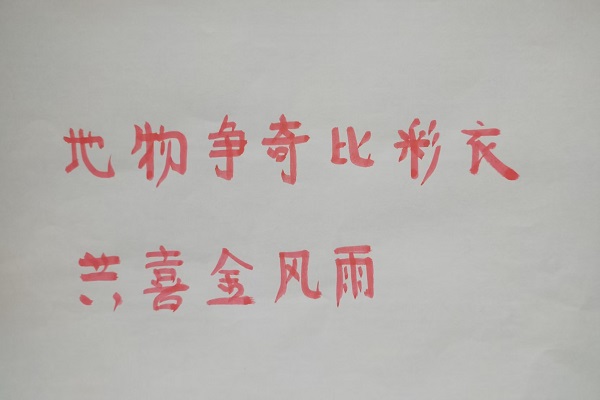 地物争奇比彩衣
共喜金风雨